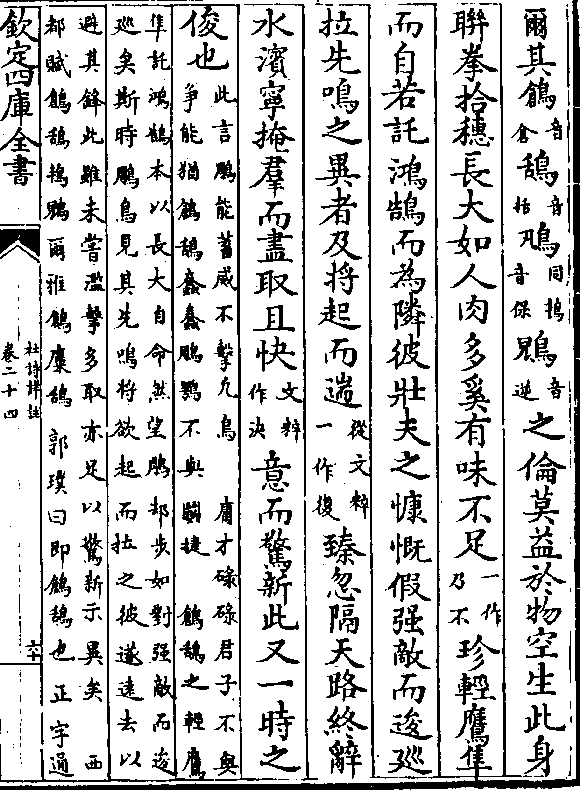 爾其鶬音倉鴰音括鳵同鴇音保鶂音逆之倫莫益於物空生此身
聯拳拾穗長大如人肉多奚有味不足一作乃不珍輕鷹隼
而自若託鴻鵠而為隣彼壯夫之慷慨假强敵而逡廵
拉先鳴之異者及將起而遄從文粹一作復臻忽隔天路終辭
水濱寧掩羣而盡取且快文粹作決意而驚新此又一時之
俊也此言鵰能蓄威不擊凡鳥 庸才碌碌君子不與
爭能猶鶬鴰蠢蠢鵰鶚不與鬭捷 鶬鴰之輕鷹
隼託鴻鵠本以長大自命然望鵰却步如對强敵而逡
廵矣斯時鵰鳥見其先鳴將欲起而拉之彼遂遠去以
避其鋒此雖未嘗濫擊多取亦足以驚新示異矣 西
都賦鶬鴰鴇鶂爾雅鶬麋鴰 郭璞曰即鶬鴰也正字通
欽定四庫全書
杜詩詳註
卷二十四
六十